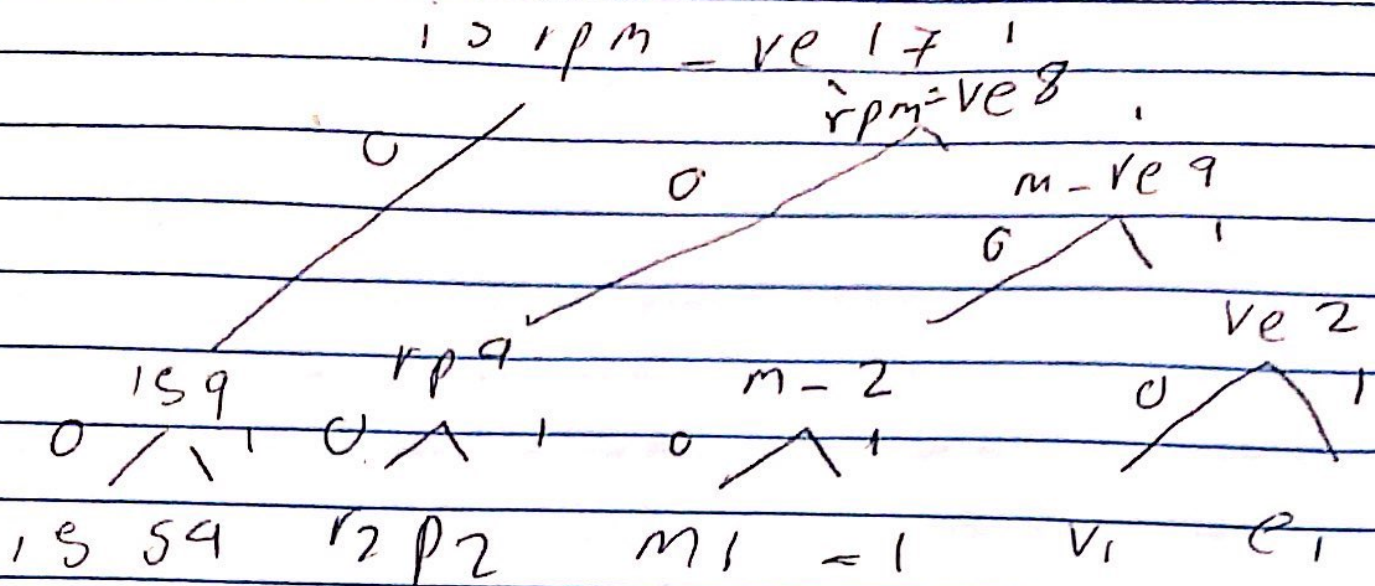 isrpm_ve 17 1
rpm-ve8
0 0 1
m-ve 9
0 1
ve 2
is9 rp9 m-2 0 1
0 1 0 1 0 1
i5 s9 r2 p2 m1 -1 v1 e1